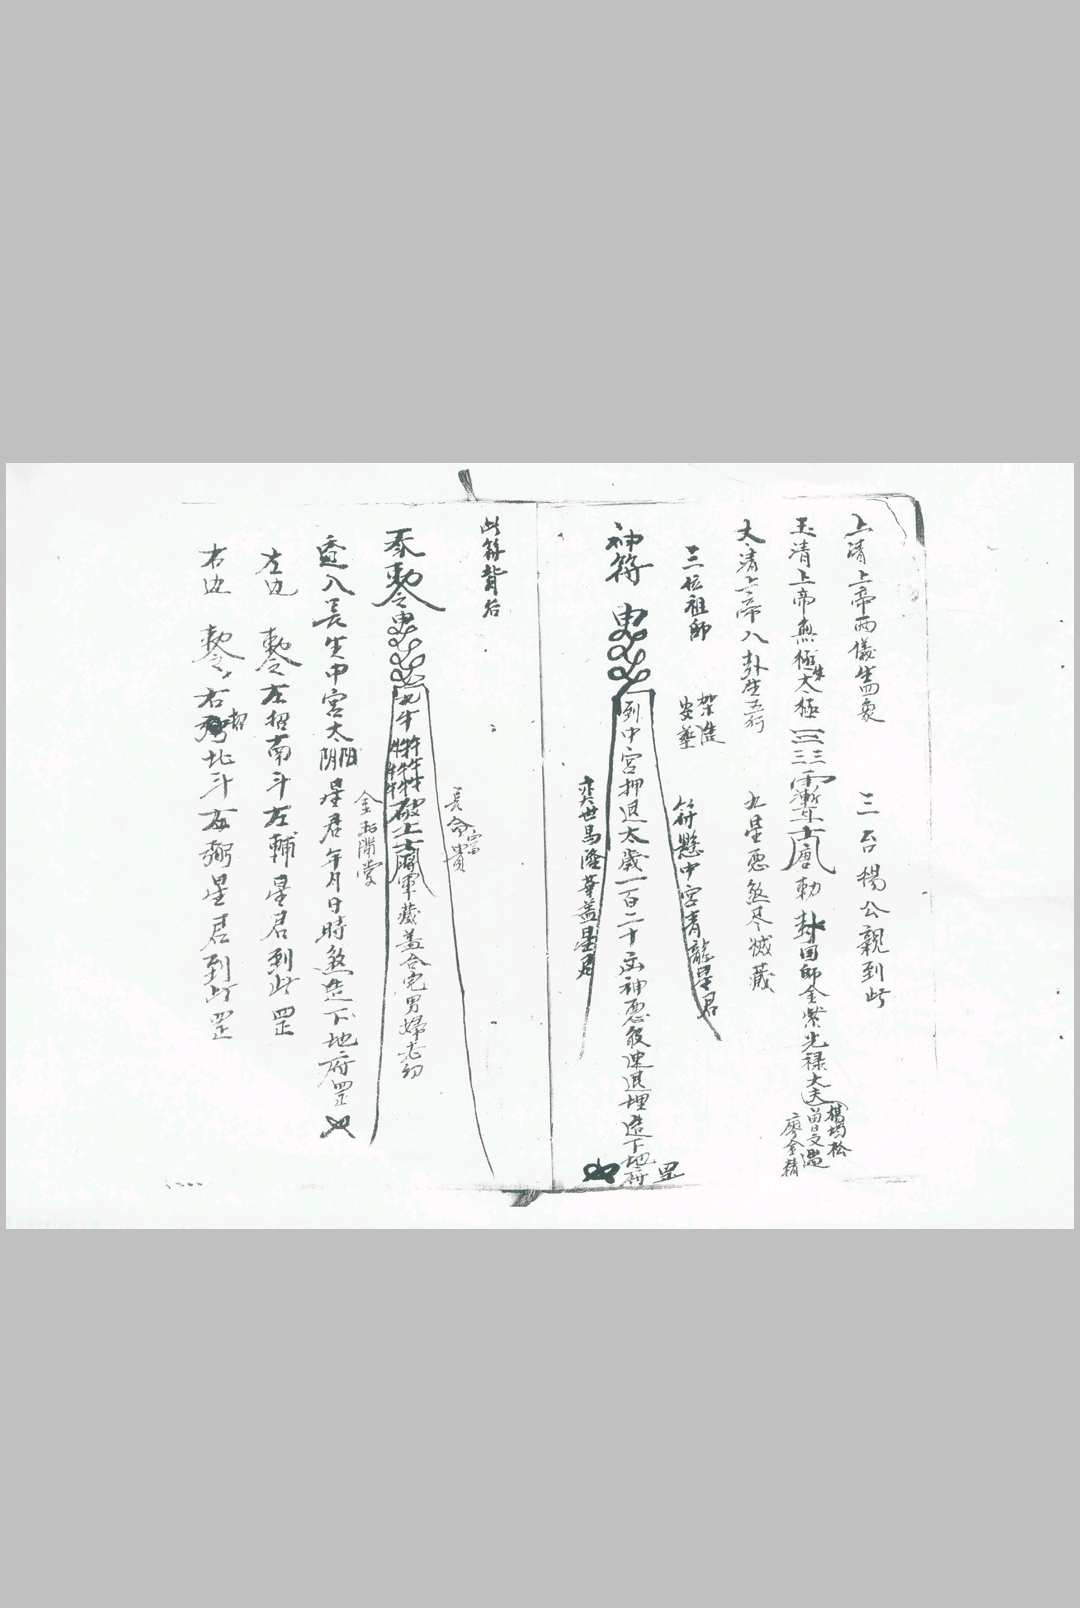 上清上帝兩儀生四象 三台楊公親到此
玉清上帝無極生太極 唐勅封国師金紫光禄大夫
楊筠松
廖金精
太清上帝八卦生五行 九星惡煞尽滅藏
三位祖師
架造
安葬
符懸中宮青龍星君
神符
到中宮押退太歲一百二十凶神惡殺速退埋進下地府 罡
奕世昌隆華蓋星君
此符背后
長命富貴
奉勅令
破土將軍藏蓋合宅男婦老幼
金玉滿堂
透入長生中宮太陽陰星君年月日時煞進下地府罡
左边 勅令左招南斗左輔星君到此罡
右边 勅令右招北斗右弼星君到此罡